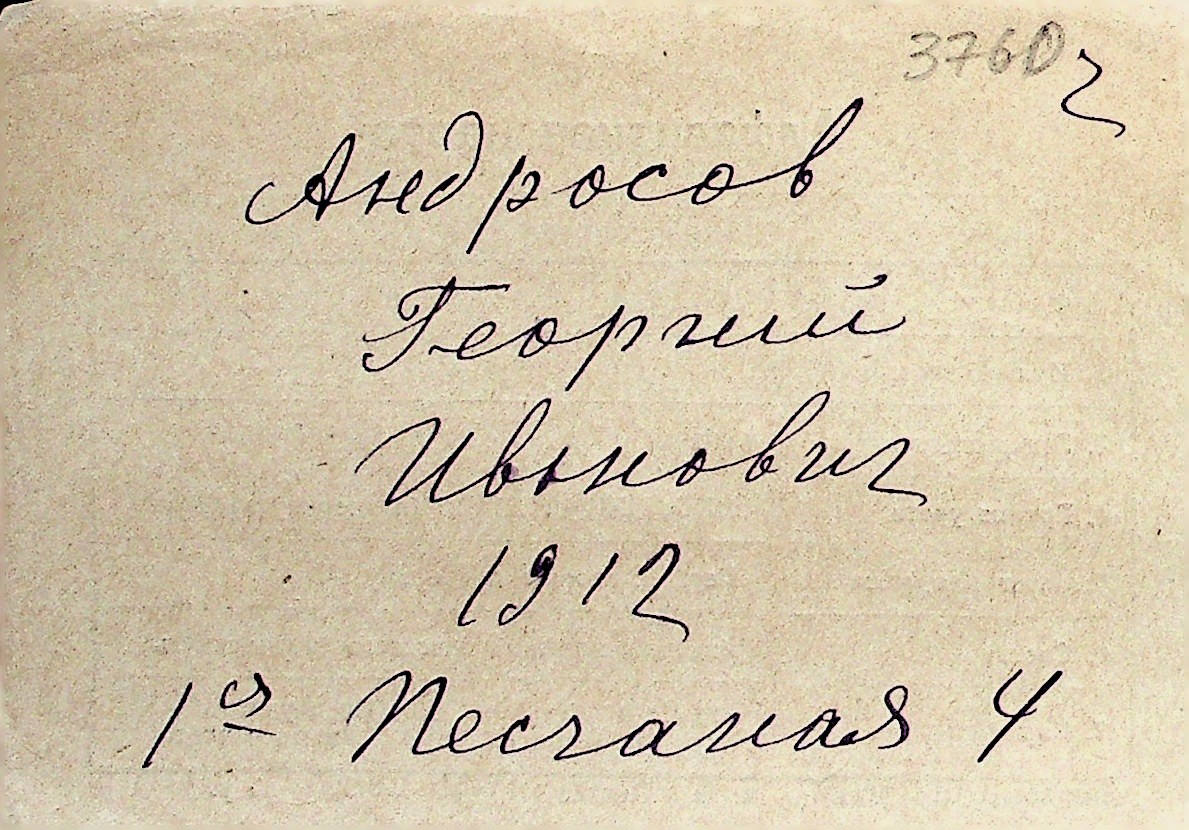 3760
2
Андросов
Георгий
Иванович
1912
1я Песчаная 4